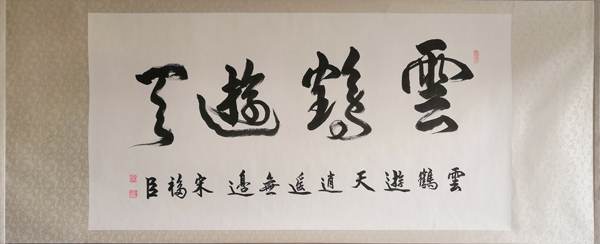 雲鶴遊天
雲鶴遊天逍遥無邊宋福臣